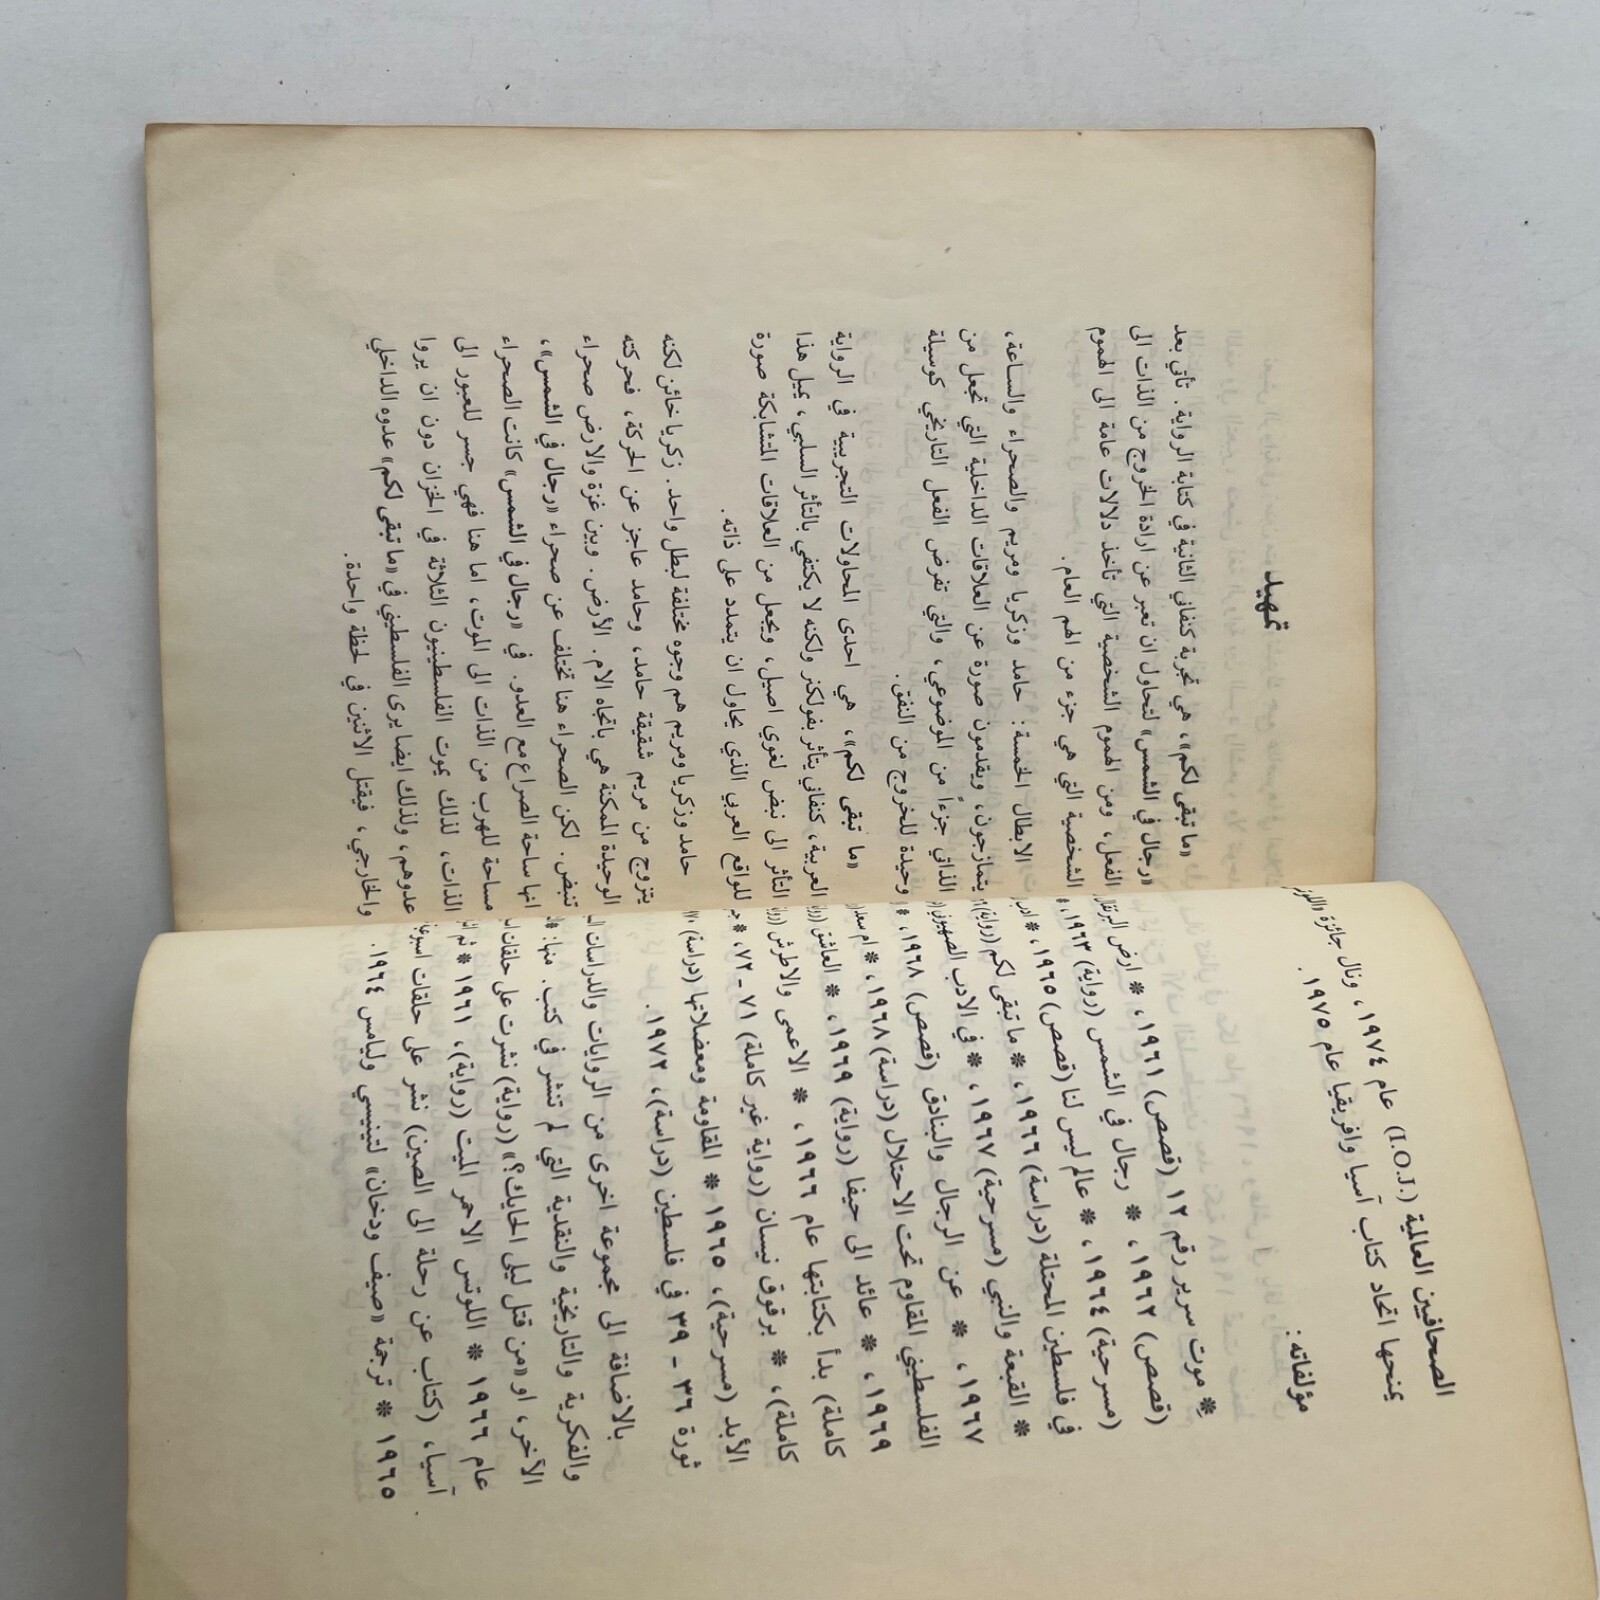 الصحافيين العالمية (I.O.J.) عام ١٩٧٤، ونال جائزة
يمنحها اتحاد كتاب آسيا وافريقيا عام ١٩٧٥.
مؤلفاته:
* موت سرير رقم ١٢ (قصص) ١٩٦١، * ارض البرتقال
(قصص) ١٩٦٢، * رجال في الشمس (رواية) ١٩٦٣، *
(مسرحية) ١٩٦٤، * عالم ليس لنا (قصص) ١٩٦٥، *
في فلسطين المحتلة (دراسة) ١٩٦٦، * ما تبقى لكم (رواية)
* القبعة والنبي (مسرحية) ١٩٦٧، * في الادب الصهيوني
١٩٦٧، * عن الرجال والبنادق (قصص) ١٩٦٨، *
الفلسطيني المقاوم تحت الاحتلال (دراسة) ١٩٦٨، * ام سعد
١٩٦٩، * عائد الى حيفا (رواية) ١٩٦٩، * العاشق
كاملة) بدأ بكتابتها عام ١٩٦٦، * الاعمى والاطرش
كاملة)، * برقوق نيسان (رواية غير كاملة) ٧١ - ٧٢، *
الأبد (مسرحية)، ١٩٦٥ * المقاومة ومعضلاتها (دراسة)
ثورة ٣٦ - ٣٩ في فلسطين (دراسة)، ١٩٧٢.
بالاضافة الى مجموعة اخرى من الروايات والدراسات
والفكرية والتاريخية والنقدية التي لم تنشر في كتب. منها:
الآخر، او «من قتل ليلى الحايك؟» (رواية) نشرت على حلقات
عام ١٩٦٦ * اللوتس الاحمر الميت (رواية)، ١٩٦١ * ثم
آسيا، (كتاب عن رحلة الى الصين) نشر على حلقات
١٩٦٥ * ترجمة «صيف ودخان» لتينيسي وليامس ١٩٦٤.
تمهيد
«ما تبقى لكم»، هي تجربة كنفاني الثانية في كتابة الرواية. تأتي بعد
«رجال في الشمس» لتحاول ان تعبر عن ارادة الخروج من الذات الى
الفعل، ومن الهموم الشخصية التي تأخذ دلالات عامة الى الهموم
الشخصية التي هي جزء من الهم العام.
الابطال الخمسة: حامد وزكريا ومريم والصحراء والساعة،
يتمازجون، ويقدمون صورة عن العلاقات الداخلية التي تجعل من
الذاتي جزءاً من الموضوعي، والتي تفرض الفعل التاريخي كوسيلة
وحيدة للخروج من النفق.
«ما تبقى لكم»، هي احدى المحاولات التجريبية في الرواية
العربية، كنفاني يتأثر بفولكنر ولكنه لا يكتفي بالتأثر السلبي، يميل هذا
التأثر الى نبض لغوي اصيل، ويجعل من العلاقات المتشابكة صورة
للواقع العربي الذي يحاول ان يتمدد على ذاته.
حامد وزكريا ومريم هم وجوه مختلفة لبطل واحد. زكريا خائن لكنه
يتزوج من مريم شقيقة حامد، وحامد عاجز عن الحركة، فحركته
الوحيدة الممكنة هي باتجاه الام. الأرض. وبين غزة والارض صحراء
تنبض. لكن الصحراء هنا تختلف عن صحراء «رجال في الشمس»،
انها ساحة الصراع مع العدو. في «رجال في الشمس» كانت الصحراء
مساحة للهرب من الذات الى الموت، اما هنا فهي جسر للعبور الى
الذات، لذلك يموت الفلسطينيون الثلاثة في الخزان دون ان يروا
عدوهم، ولذلك ايضا يرى الفلسطيني في «ما تبقى لكم» عدوه الداخلي
والخارجي، فيقتل الاثنين في لحظة واحدة.